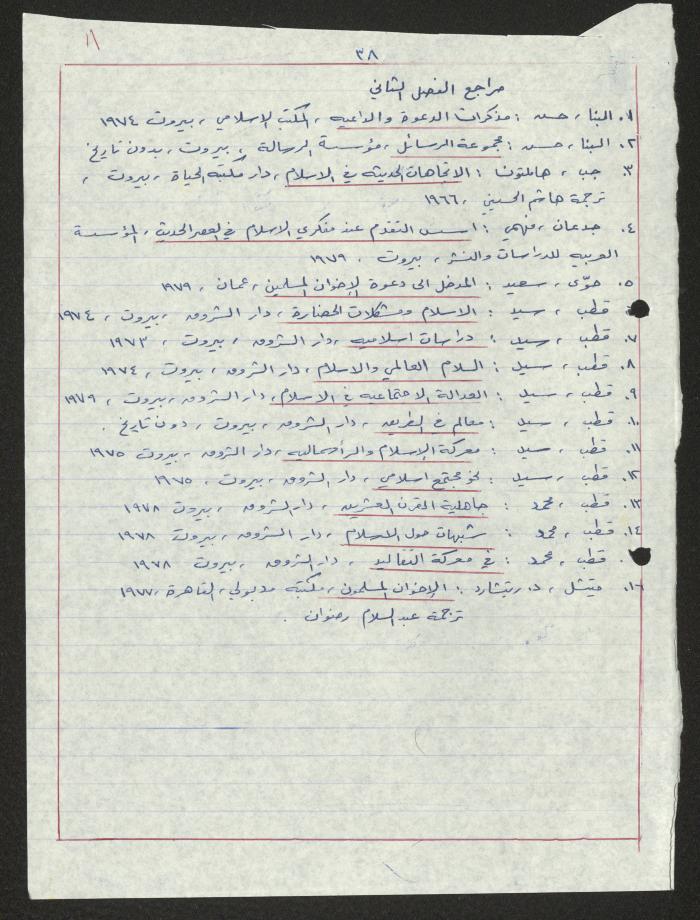 ٣٨
مراجع الفصل الثاني
١. البنا، حسن : مذكرات الدعوة والداعيه، المكتب الاسلامي، بيروت ١٩٧٤
٢. البنا، حسن : مجموعة الرسائل، مؤسسة الرسالة، بيروت، بدون تاريخ
٣. جب، هاملتون : الاتجاهات الحديثه في الاسلام، دار مكتبة الحياة، بيروت،
ترجمة هاشم الحسيني، ١٩٦٦
٤. جدعان، فهمي : اسس التقدم عند مفكري الاسلام في العصر الحديث، المؤسسة
العربيه للدراسات والنشر، بيروت، ١٩٧٩
٥. حوّى، سعيد : المدخل الى دعوة الإخوان المسلمين، عمان، ١٩٧٩
قطب، سيد : الاسلام ومشكلات الحضارة، دار الشروق، بيروت، ١٩٧٤
٧. قطب، سيد : دراسات اسلاميه، دار الشروق، بيروت، ١٩٧٣
٨. قطب، سيد : السلام العالمي والاسلام، دار الشروق، بيروت، ١٩٧٤
٩. قطب، سيد : العدالة الاجتماعيه في الاسلام، دار الشروق، بيروت، ١٩٧٩
١٠. قطب، سيد : معالم في الطريق، دار الشروق، بيروت، دون تاريخ.
١١. قطب، سيد : معركة الإسلام والرأسماليه، دار الشروق، بيروت ١٩٧٥
١٢. قطب، سيد : نحو مجتمع اسلامي، دار الشروق، بيروت، ١٩٧٥
١٣. قطب، محمد : جاهلية القرن العشرين، دار الشروق، بيروت ١٩٧٨
١٤. قطب، محمد : شبهات حول الاسلام، دار الشروق، بيروت ١٩٧٨
. قطب، محمد : في معركة التقاليد، دار الشروق، بيروت ١٩٧٨
١٦. ميتشل، د. ريتشارد : الإخوان المسلمون، مكتبة مدبولي، القاهرة، ١٩٧٧،
ترجمة عبد السلام رضوان.